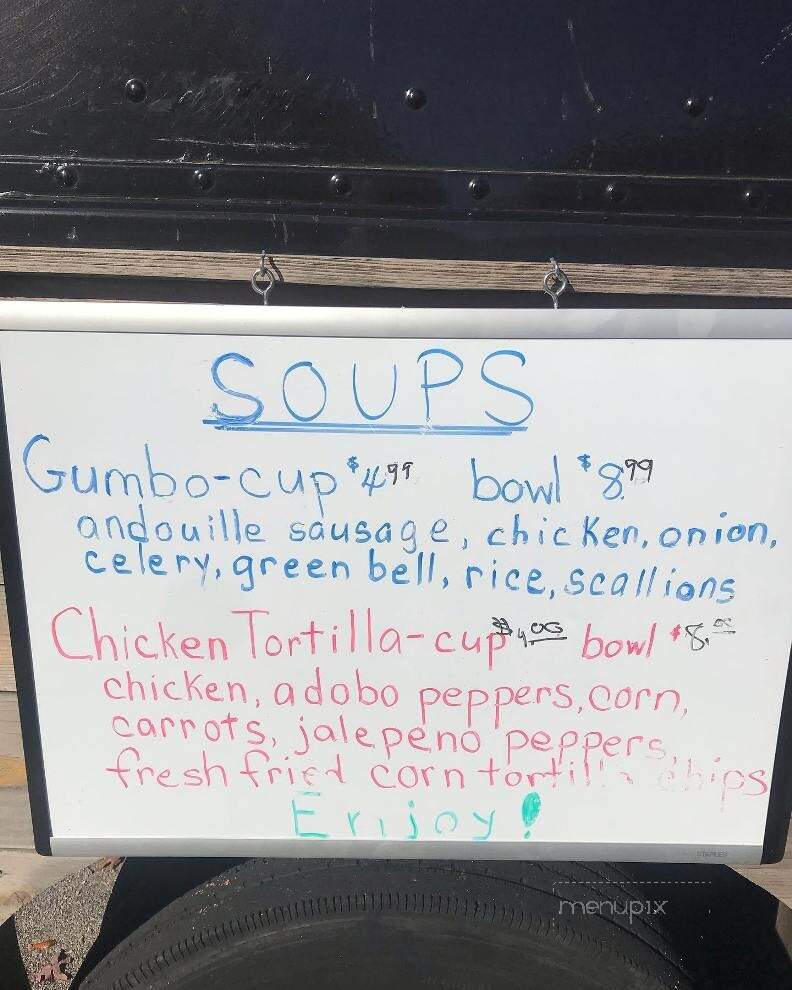 SOUPS
Gumbo-cup $4.99 bowl $8.99
andouille sausage, chicken, onion,
celery, green bell, rice, scallions
Chicken Tortilla-cup $4.00 bowl $8.00
chicken, adobo peppers, corn,
carrots, jalepeno peppers,
fresh fried corn tortilla chips
Enjoy!
STAPLES
menupix